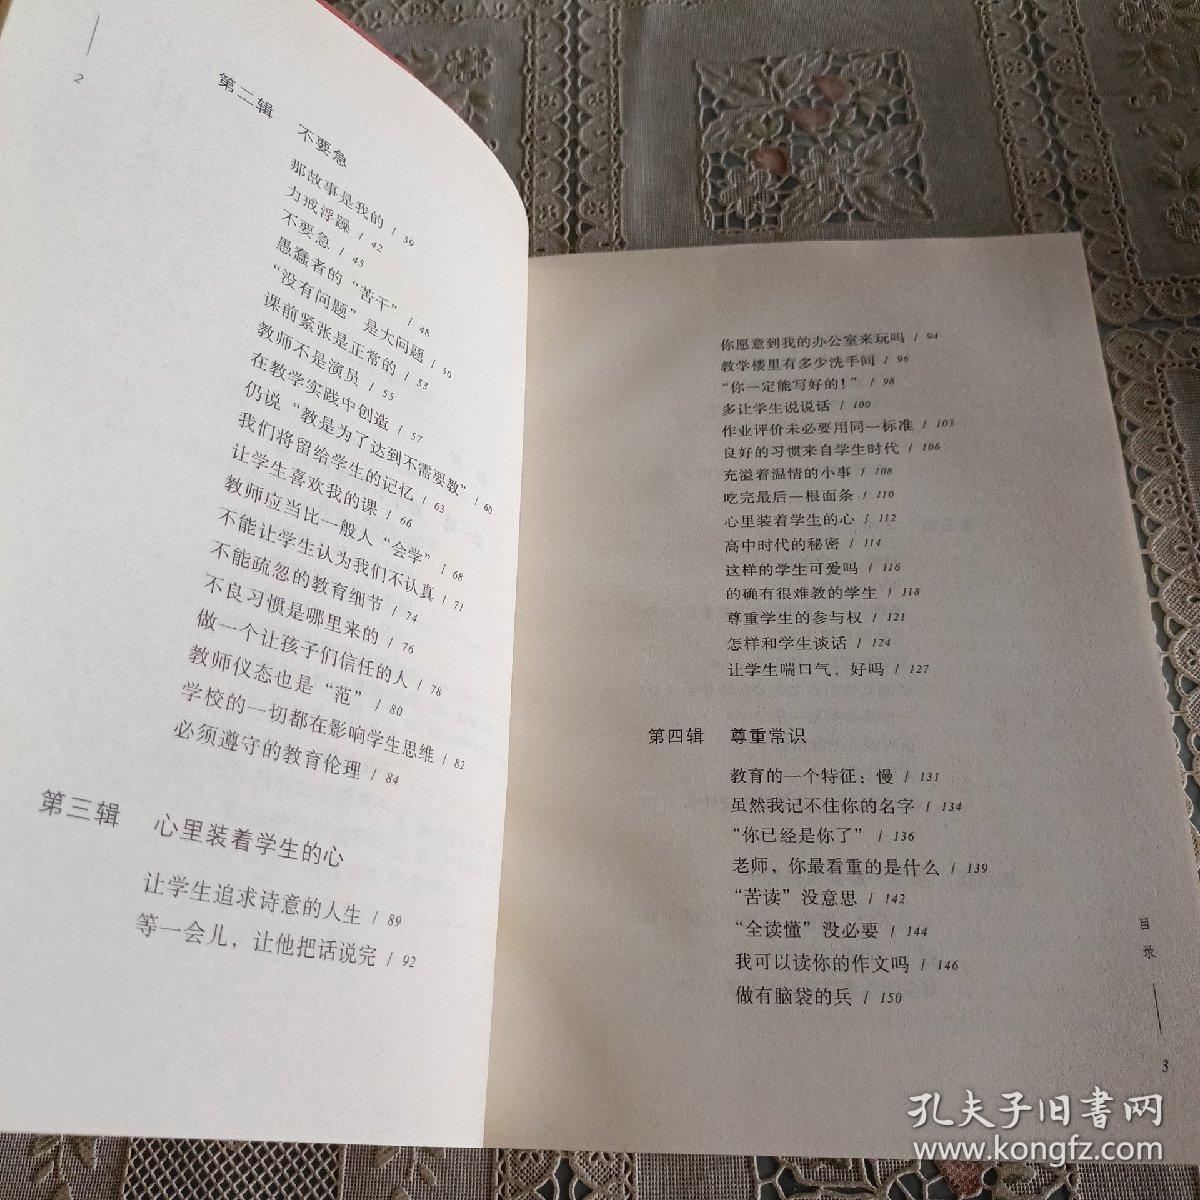 2
第二辑 不要急
那故事是我的 / 39
力戒浮躁 / 42
不要急 / 45
愚蠢者的“苦干” / 48
“没有问题”是大问题 / 50
课前紧张是正常的 / 53
教师不是演员 / 55
在教学实践中创造 / 57
仍说“教是为了达到不需要教” / 60
我们将留给学生的记忆 / 63
让学生喜欢我的课 / 66
教师应当比一般人“会学” / 68
不能让学生认为我们不认真 / 71
不能疏忽的教育细节 / 74
不良习惯是哪里来的 / 76
做一个让孩子们信任的人 / 78
教师仪态也是“范” / 80
学校的一切都在影响学生思维 / 82
必须遵守的教育伦理 / 84
第三辑 心里装着学生的心
让学生追求诗意的人生 / 89
等一会儿，让他把话说完 / 92
你愿意到我的办公室来玩吗 / 94
教学楼里有多少洗手间 / 96
“你一定能写好的！” / 98
多让学生说说话 / 100
作业评价未必要用同一标准 / 103
良好的习惯来自学生时代 / 106
充溢着温情的小事 / 108
吃完最后一根面条 / 110
心里装着学生的心 / 112
高中时代的秘密 / 114
这样的学生可爱吗 / 116
的确有很难教的学生 / 118
尊重学生的参与权 / 121
怎样和学生谈话 / 124
让学生喘口气，好吗 / 127
第四辑 尊重常识
教育的一个特征：慢 / 131
虽然我记不住你的名字 / 134
“你已经是你了” / 136
老师，你最看重的是什么 / 139
“苦读”没意思 / 142
“全读懂”没必要 / 144
我可以读你的作文吗 / 146
做有脑袋的兵 / 150
目录
3
孔夫子旧书网
www.kongfz.com